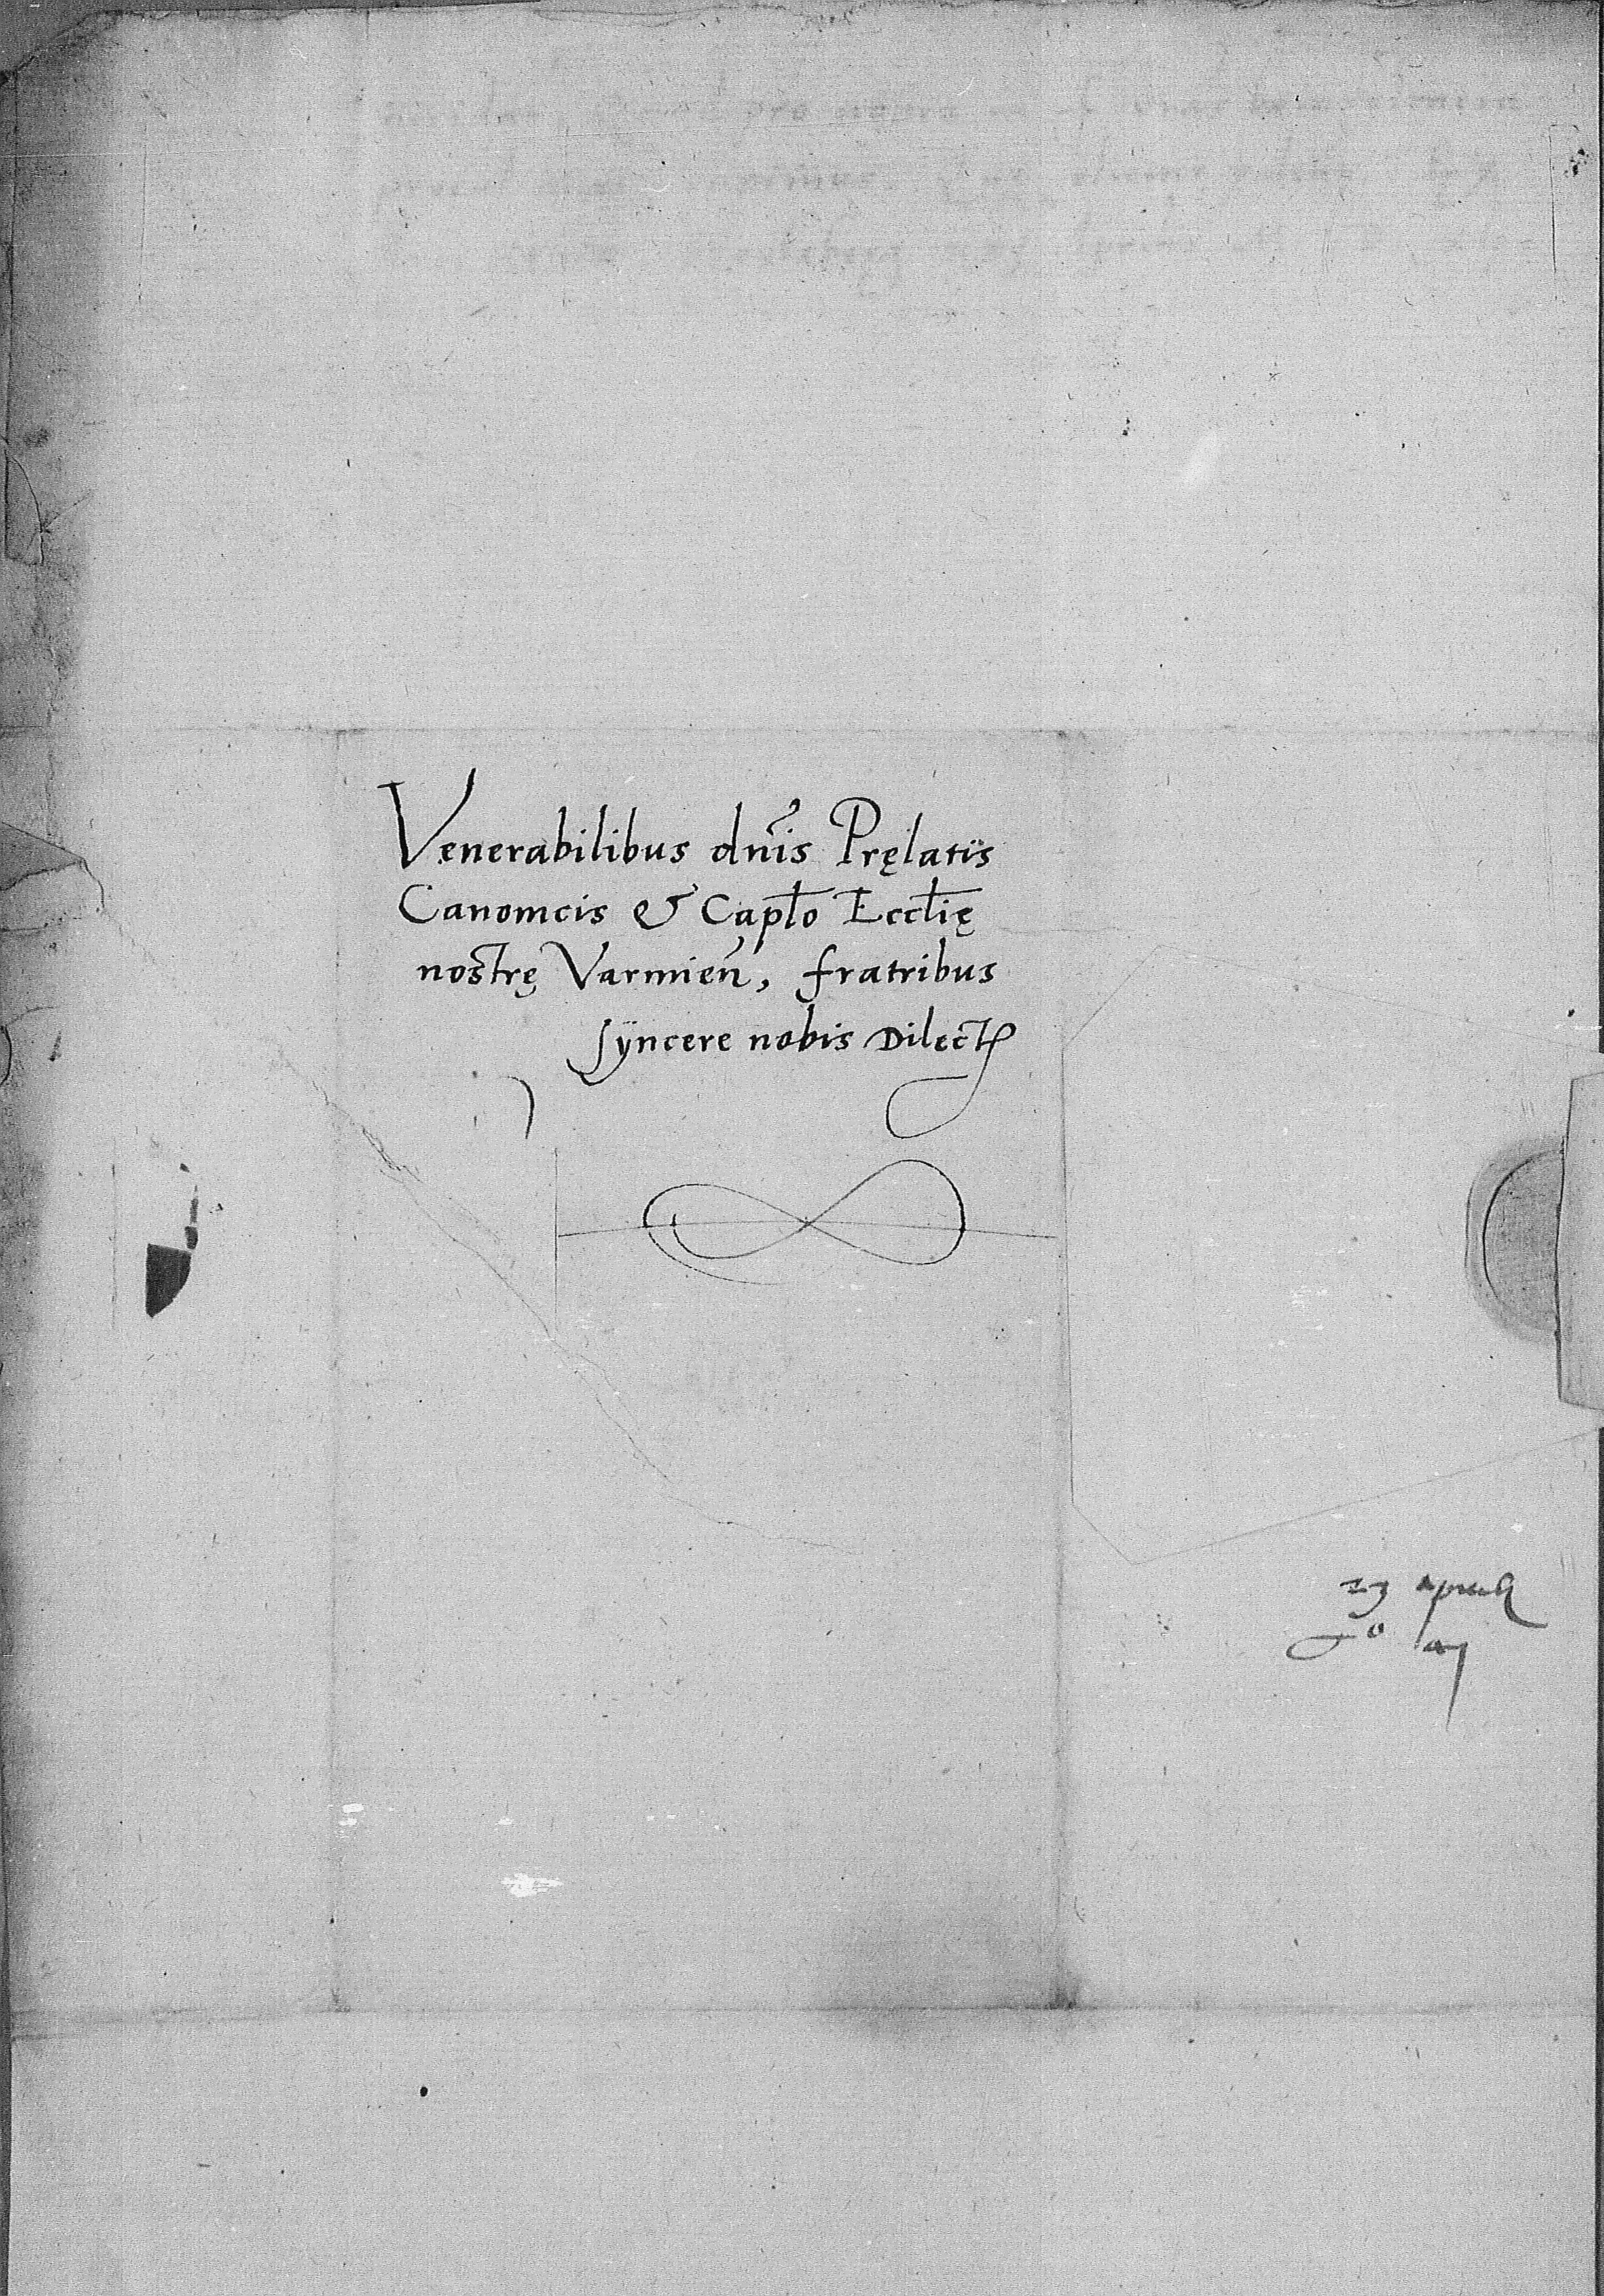 Venerabilibus dn̄is Pręlatis
Canonicis & Capło Ecclię
nostrę Varmień, fratribus
syncere nobis Dilectꝭ
23 aprilis